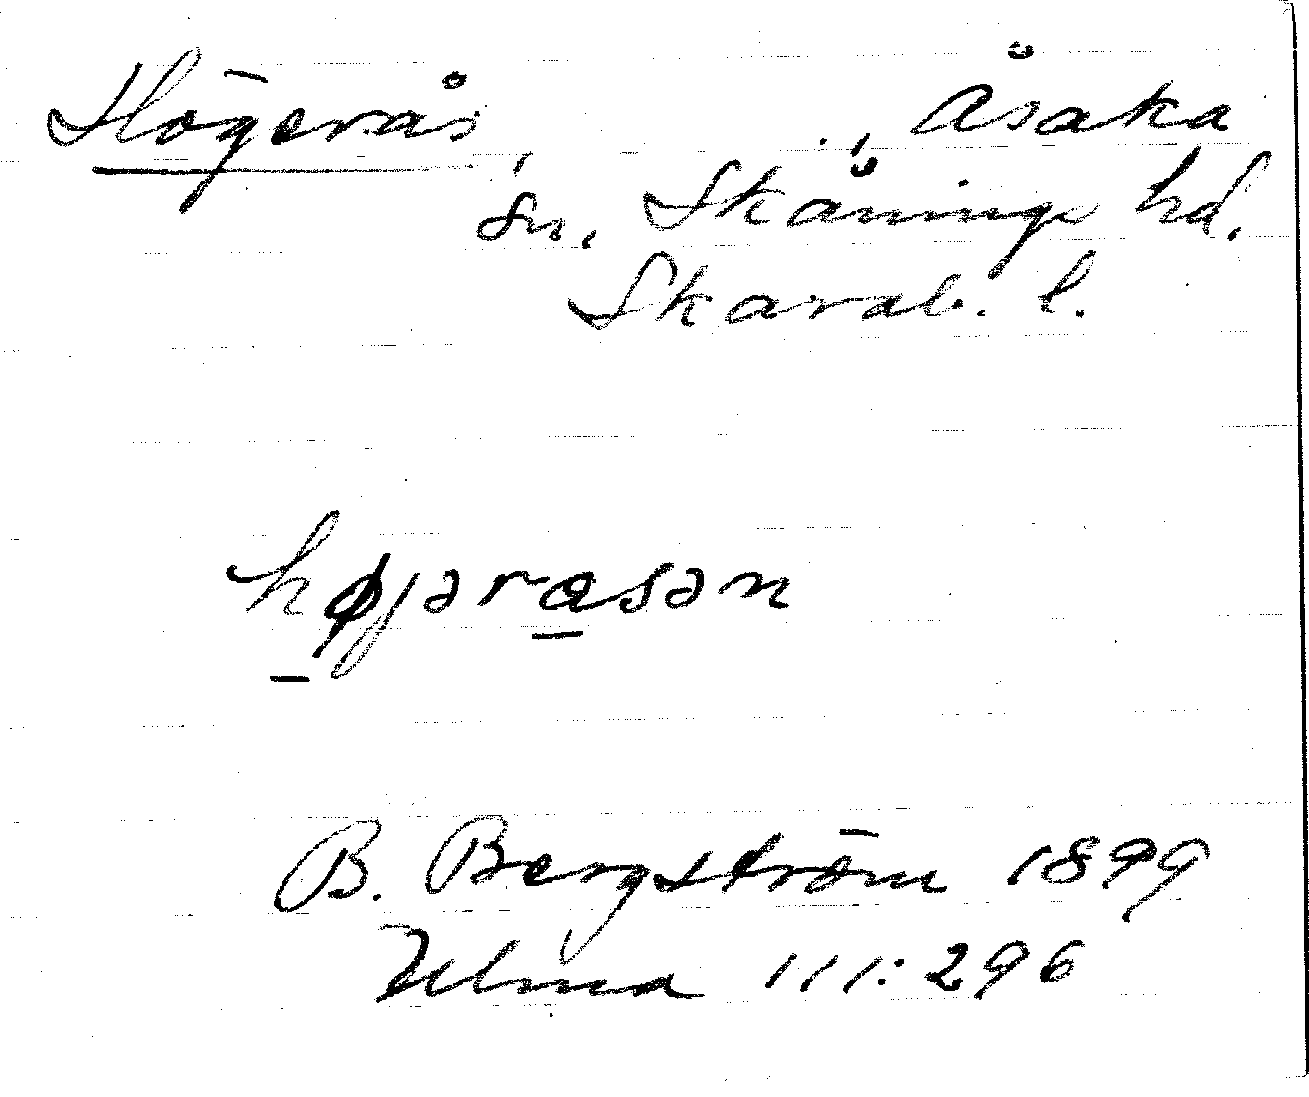 Högerås, Åsaka
sn, Skånings hd.
Skarab. l.
højarasən
B. Bergström 1899
Ulma 111:296